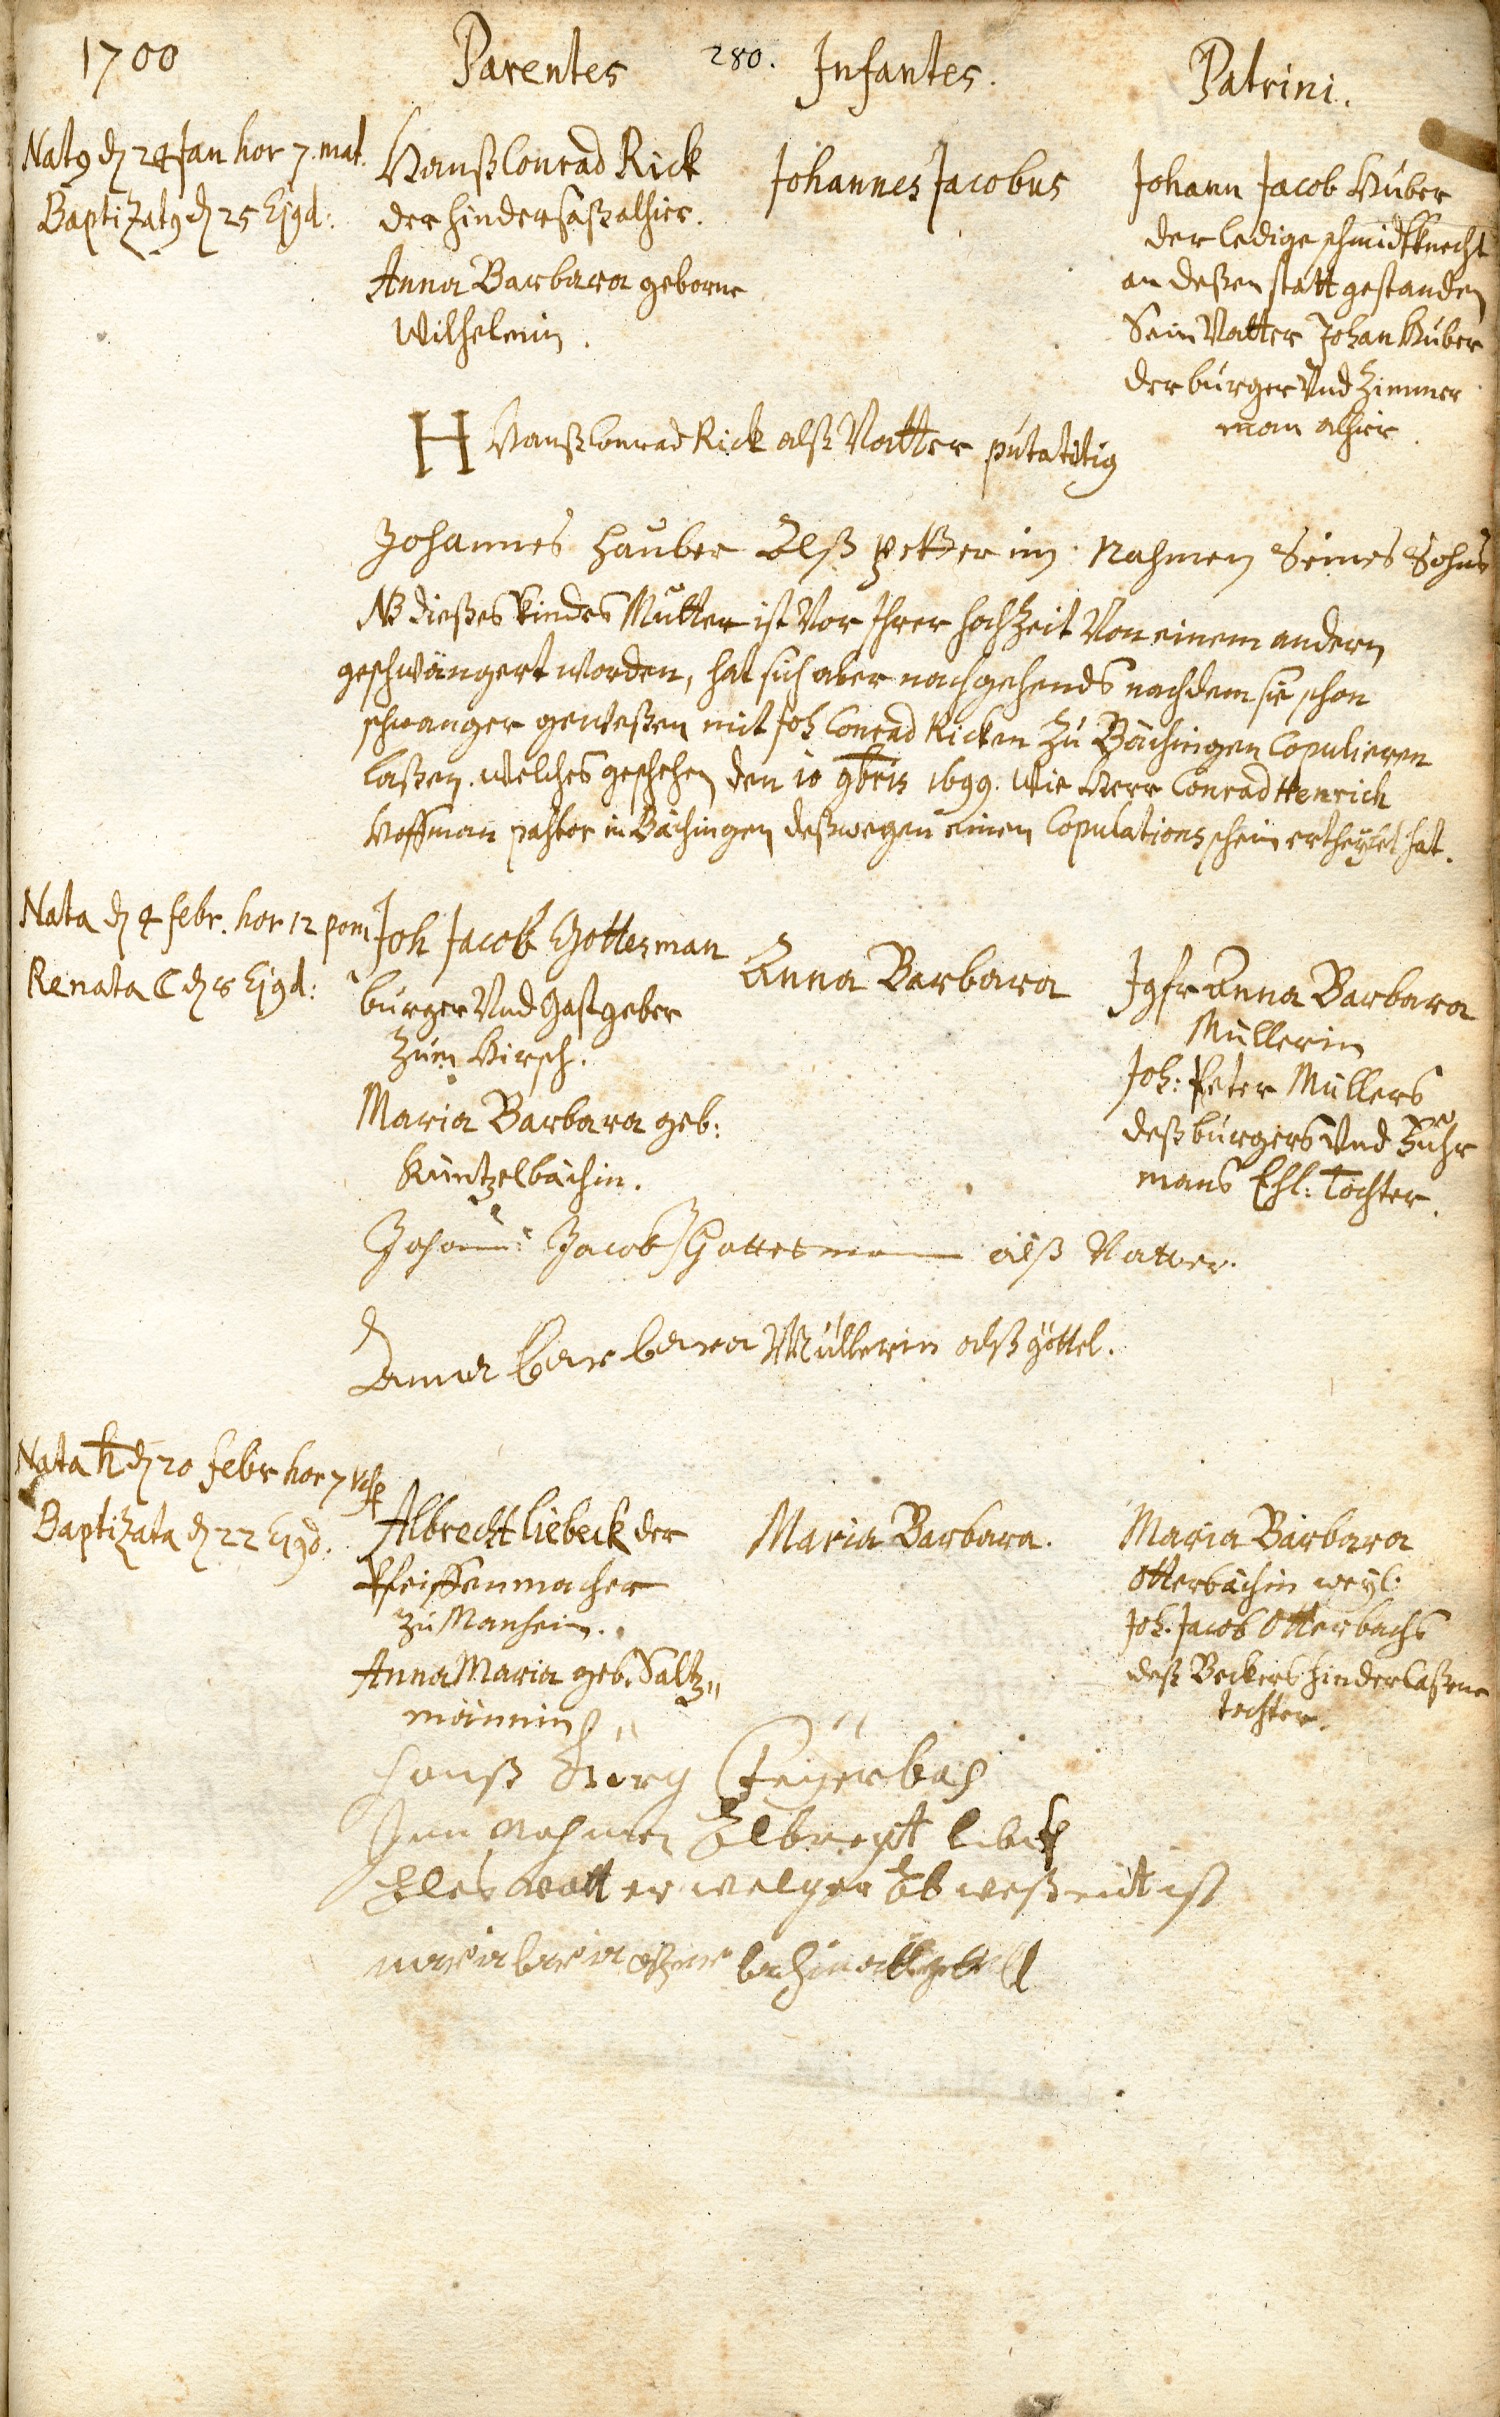 1700 Parentes 280. Infantes. Patrini.
Nat9 d. 24 Jan hor 7. mat.
Baptizat9 d. 25 Ej9d:
Hanß Conrad Rick
der hindersaß alhier.
Anna Barbara geborne
Wilhelmin.
Johannes Jacobus
Johann Jacob Huber
der ledige schmidtknecht
an deßen statt gestanden
Sein Vatter Johan Huber
der bürger Und Zimmer
man alhier.
H Hanß Conrad Rick alß Vatter putatitig
Johannes Hauber Alß petter im Nahmen Seines Sohns
NB dießes Kindes Mutter ist Vor Ihrer hochzeit Von einem andern
geschwängert worden, hat sich aber nachgehends nachdem sie schon
schwanger geweßen mit Joh Conrad Ricken zu Bächingen Copulieren
laßen. welches geschehen den 10 9bris 1699. wie Herr Conrad Henrich
Hoffman pastor in Bächingen deßwegen einen Copulations schein ertheylet hat.
Nata d. 4 febr. hor 12 pom
Renata ☾ d. 8 Ej9d:
Joh Jacob Gottesman
bürger Und Gastgeber
zum Hirsch.
Maria Barbara geb:
Küntzelbächin.
Anna Barbara
Jgfr Anna Barbara
Müllerin
Joh: Peter Müllers
deß bürgers Und
mans Ehl: Tochter.
Johann: Jacob Gottesman alß Vatter.
Anna Barbara Müllerin alß göttel.
Nata ♄ d. 20 febr hor 7 Vesp
Baptizata d. 22 Ej9d.
Albrecht Liebeck der
Pfeiffenmacher
zu Manheim.
Anna Maria geb. Saltz„
männin
Maria Barbara.
Maria Barbara
Otterbächin weyl.
Joh. Jacob Otterbachs
deß Beckers hinderlaßene
tochter.
Hanß Jörg Feÿerbach
Inn Nahmen Albrecht Libeck
Alles vatter welger ab weßent ist
maria